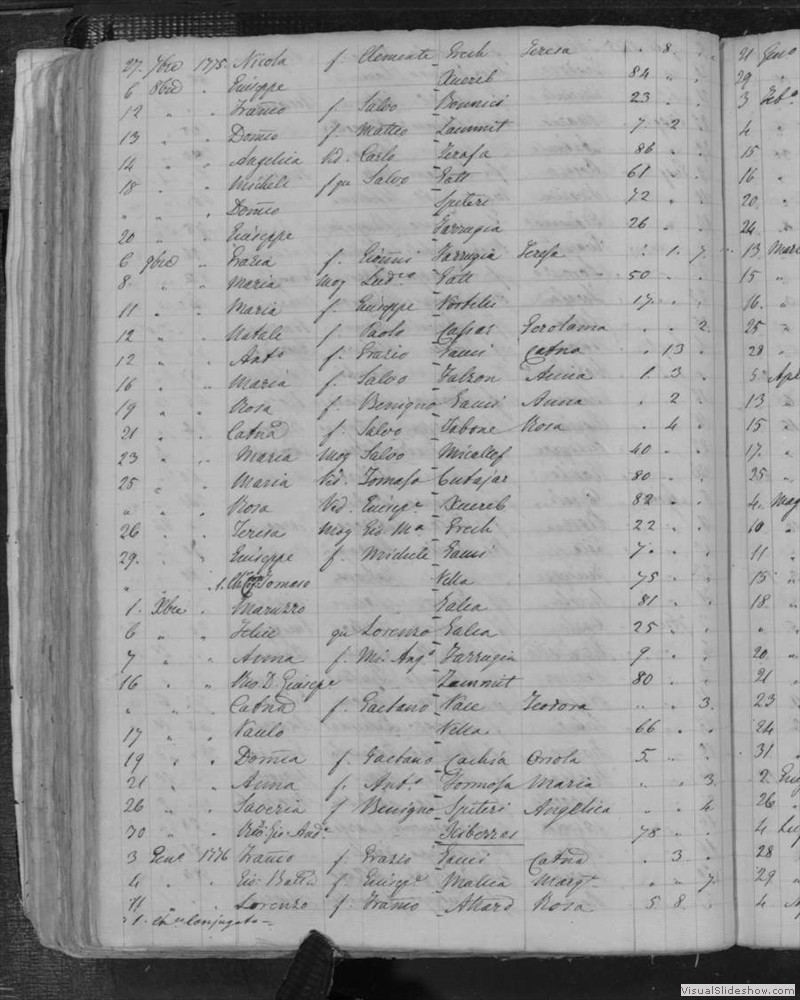 27. 7bre 1775. Nicola f. Clemente Grech Teresa . 8 .
6 8bre . Giuseppe Xuereb 84 . .
12 " . Franco f. Salvo Bonnici 23 . .
13 " . Domco f. Matteo Zammit 7. 2 .
14 " . Angelica Vid. Carlo Terafa 86 . .
18 " . Micheli f qu Salvo Gatt 61 . .
" " . Domco Spiteri 72 . .
20 " . Giuseppe Farrugia 26 . .
6 9bre " Grazia f. Gionni Farrugia Teresa . 1. 7.
8. " " Maria mog Ludco Gatt 50 . .
11 . " Maria f. Giuseppe Portelli 17. . .
12 " . Natale f. Paolo Caspar Gerolama . . 2.
12 . . Anto f. Grazio Gauci Catna . 13 .
16 . " Maria f. Salvo Falzon Anna 1. 3 .
19 " . Rosa f. Benigno Gauci Anna . 2 .
21 . . Catna f. Salvo Tabone Rosa . 4 .
23 . . Maria mog Salvo Micallef 40 . .
25 " . Maria Vid. Tomaso Cutajar 80 . .
" . Rosa Vid. Giusepe Xuereb 82 . .
26 " . Teresa mog Gio Ma Grech 22 . .
29. " . Giuseppe f. Micheli Gauci 7. . .
" . .1. Tomaso Vella 75 . .
1. Xbre . Maruzzo Galea 81 . .
6 " . Felice qu Lorenzo Galea 25 . .
7 . . Anna f. Mic. Ango Farrugia 9 . .
16 . " D. Giusepe Zammit 80 . .
" . . Catna f. Gaetano Pace Teodora " . 3.
17 " . Paulo Vella 66 . .
19 . . Domca f. Gaetano Cachia Orsola 5. . .
21 . . Anna f. Anto Formosa Maria " . 3
26 " . Saveria f Benigno Spiteri Angelica . . 4
30 " . Anda Sciberras 78 . .
3 Geno 1776 Franco f. Grazio Gauci Catna . 3 .
4 . . Gio: Batta f. Giusepe Mallia Margta . " 7.
11 . . Lorenzo f. Franco Attard Rosa 5 8 .
1. Conjugato –
21 Geno
29 "
3 Feb.o
4 "
15 "
16 "
20 "
24 "
13 Mar
15 "
16 "
25 "
28 "
5 Apl
13 "
15 "
17. "
25 "
4. Mag
10 "
11 "
15 "
18 "
" "
20 "
21 "
23 "
24
31
2. Giug
26 "
4 Lug
28 "
29 "
4 A
VisualSlideshow.com